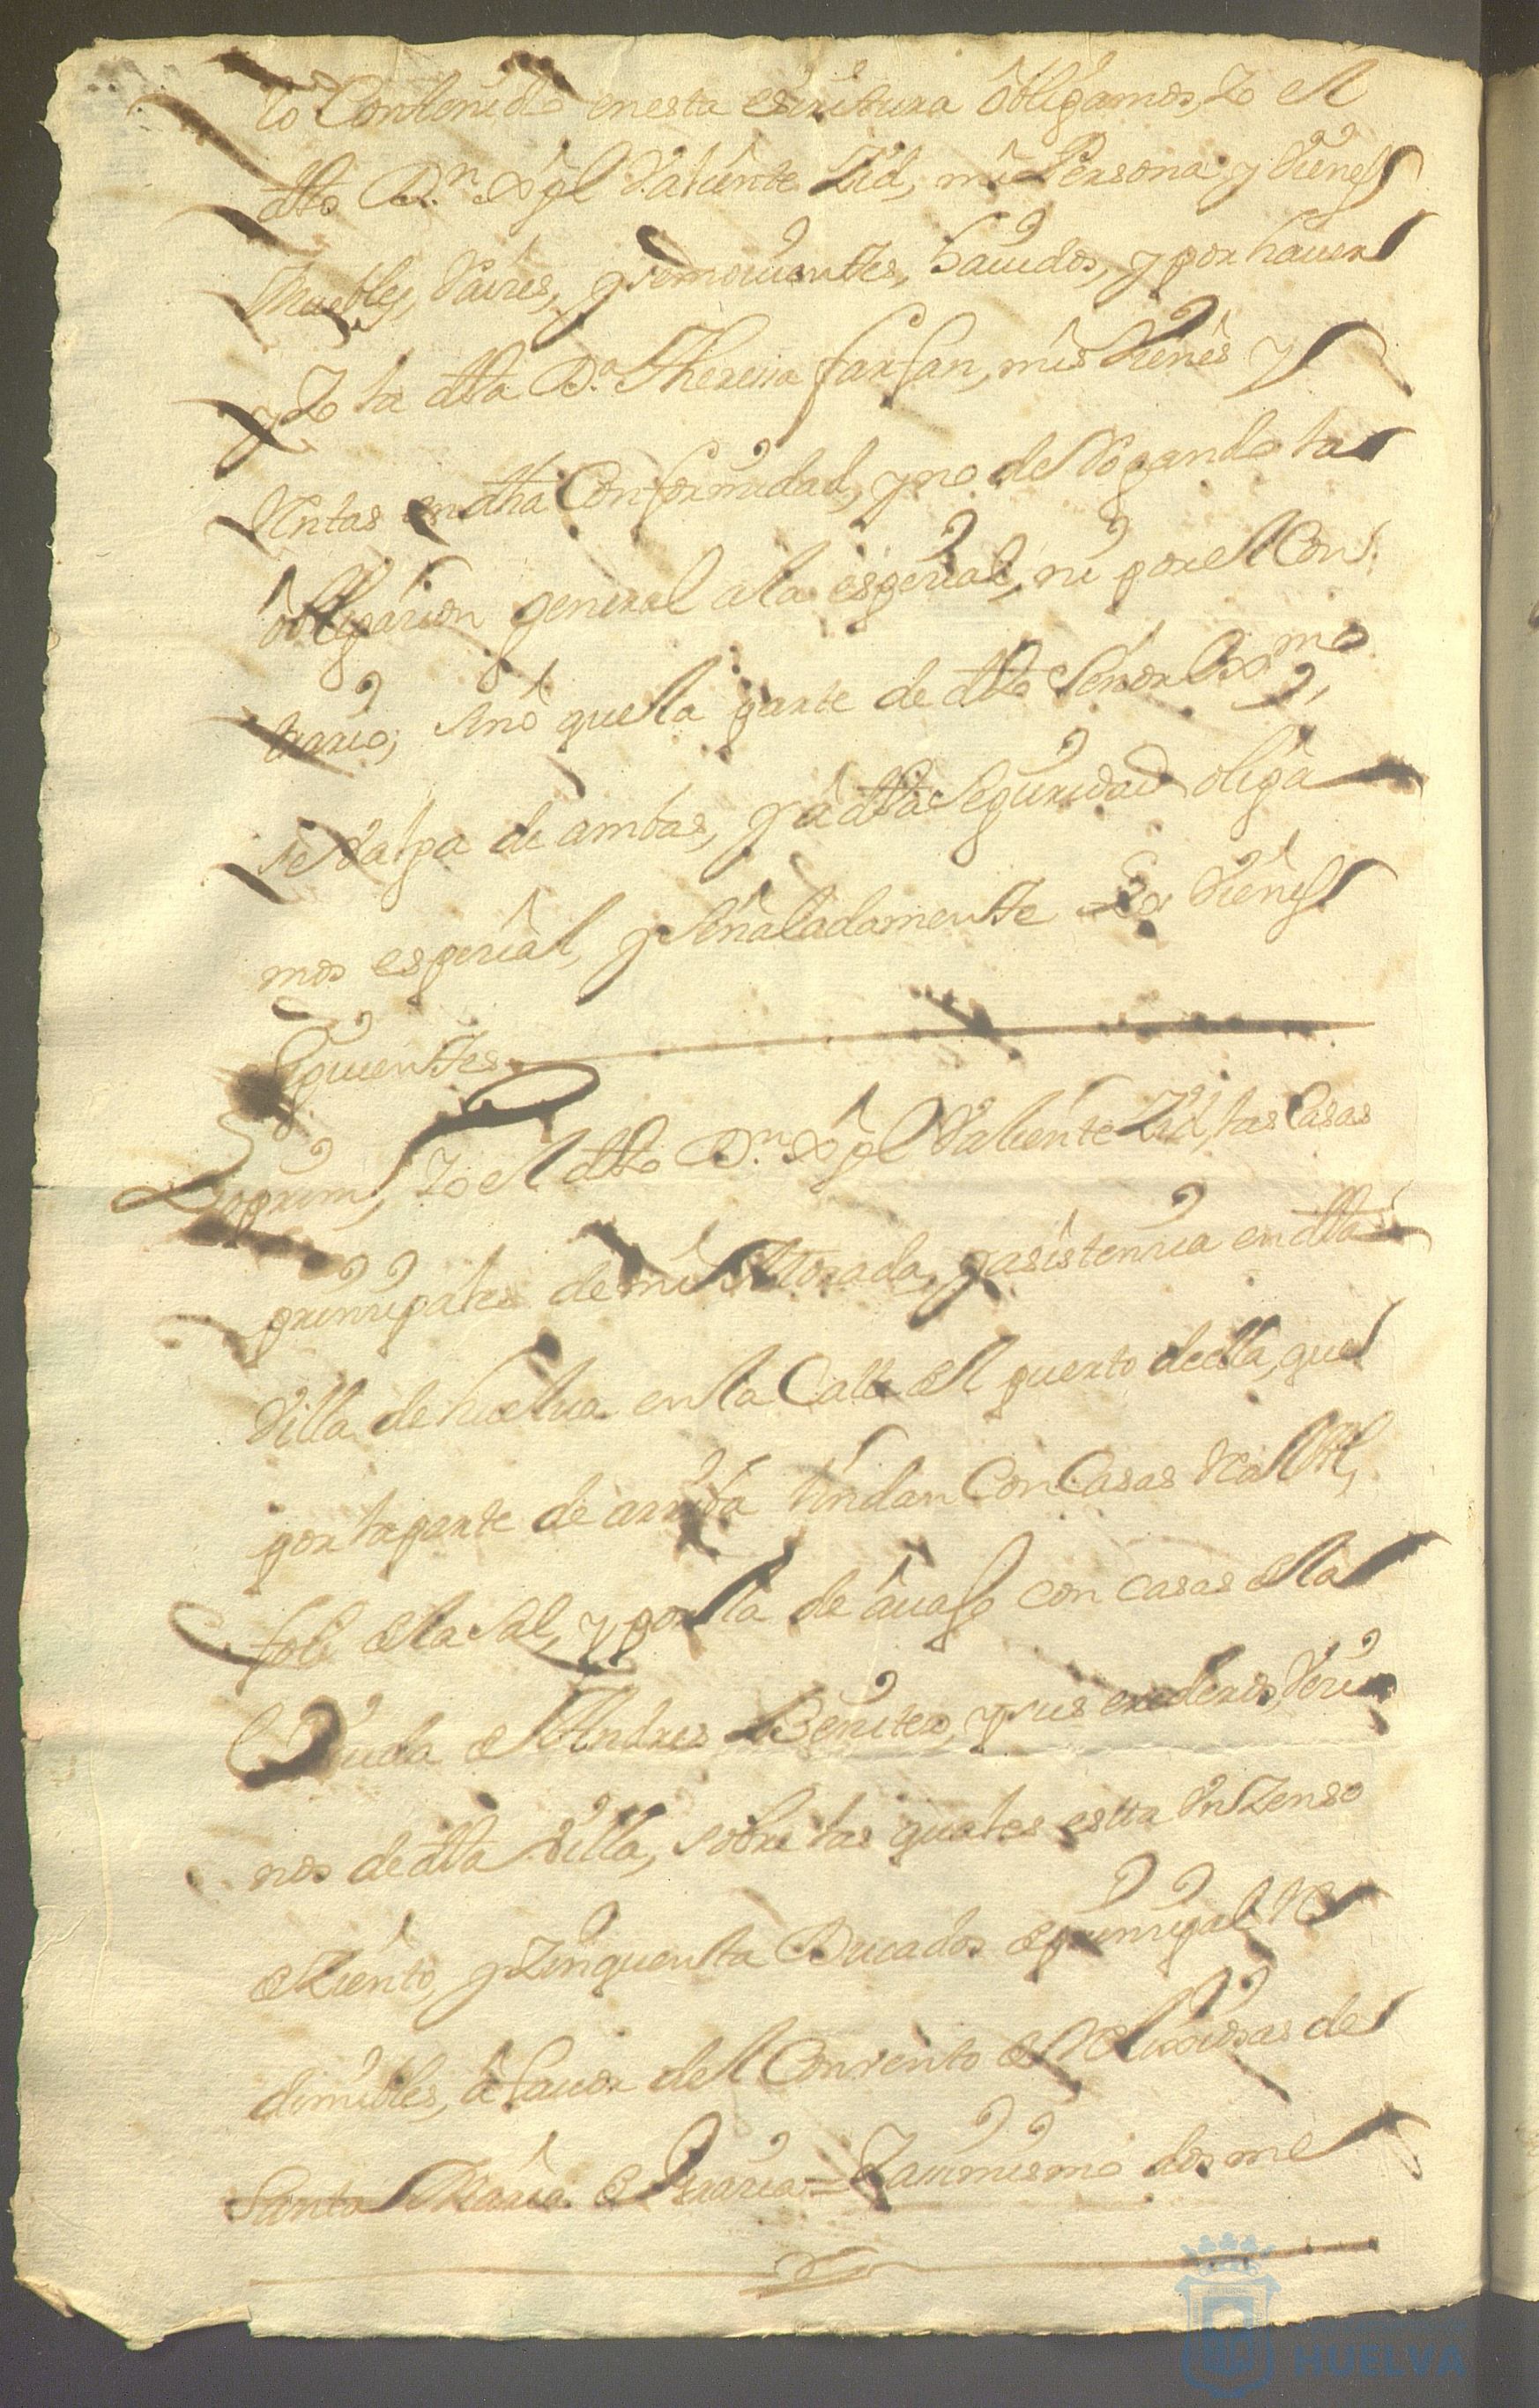 lo Contenido en esta escritura obligamos, Yo el
dho Dn. Xptl Valiente Zid, mi Persona y Vienes
Muebles, Raises, y semouientes, hauidos, y por hauer
y Yo la dha Da. Theresa farfan, mis Vienes y
Rentas en dha Conformidad, y no derogando la
obligacion general a la espesial, ni por el Con
trario, sino que la parte de dho Señor Exmo.
se valga de ambas, y a dha Seguridad obliga
mos espesial, y señaladamente los Vienes
siguientes
Lo primo, Yo el dho Dn. Xptl Valiente Zid, las Casas
prinsipales de mi Morada, y asistensia en dha
Villa de huelua en la Calle el puerto de ella, que
por la parte de arriba lindan Con Casas Real
foli de la sal, y por la de auajo con casas de la
Viuda de Andres Benites, y sus erederos, Vesi
nos de dha Villa, sobre las quales esta Un Zenso
de Ziento, y Zinquenta Ducados de prinsipal Re
dimibles, a fauor del Convento de Relixiosas de
Santa Maria de Grasia = Y asimismo dos mil
HUELVA